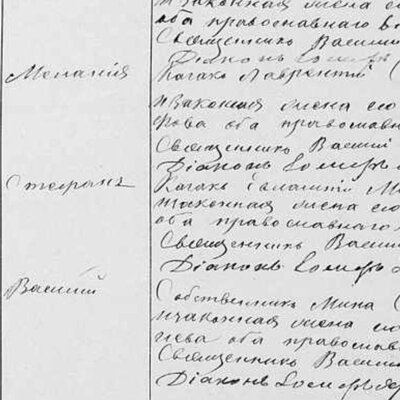 и законная жена его
оба православнаго в
Священникъ Василий
Діаконъ
Меланія
Казакъ Лаврентій
и законная жена его
оба православн
Священникъ Василий
Діаконъ
Стефанъ
Казакъ Игнатій
и законная жена его
оба православнаго
Священникъ Васили
Діаконъ
Василій
Собственникъ Мина
и законная жена его
оба православ
Священникъ Васили
Діаконъ